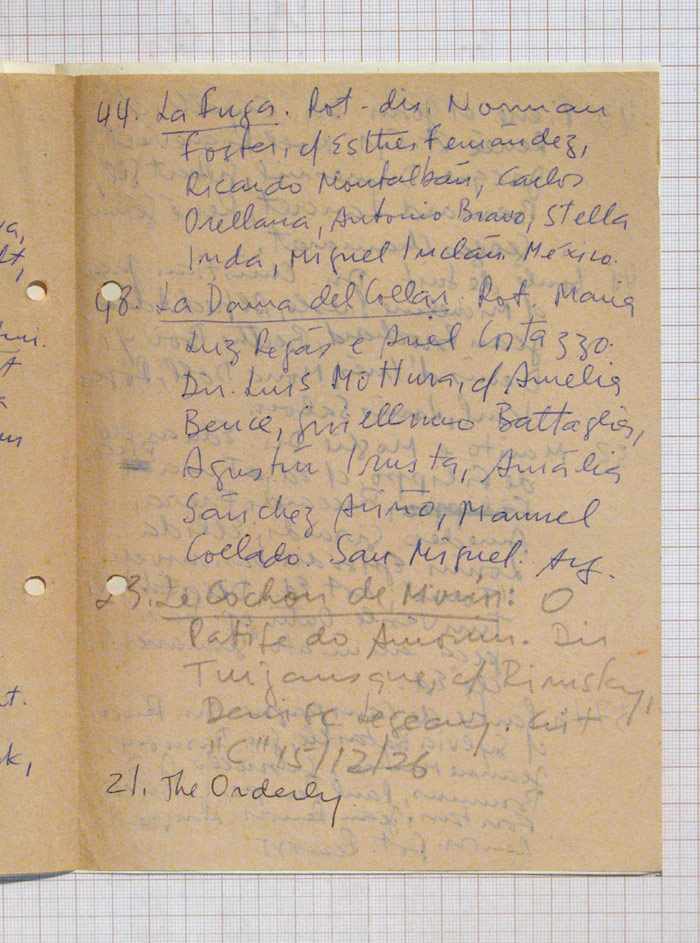 44. La Fuga. Rot - dir. Norman
Foster, c/ Esther Fernández,
Ricardo Montalbán, Carlos
Orellana, Antonio Bravo, Stella
Inda, Miguel Inclán. México.
48. La Dama del Collar. Rot. Maria
Luz Regás e Ariel Cortazzo.
Dir. Luis Mottura, c/ Amelia
Bence, Guillermo Battaglia,
Agustin Irusta, Amália
Sánchez Ariño, Manuel
Collado. San Miguel. Arg.
23. Le Cochon de Morin: O
Patife do Amorim. Dir
Turjansque c/ Rimsky,
Denise Legeay. Crit
"C" 15/12/26
21. The Orderly
va,
lt,
k,